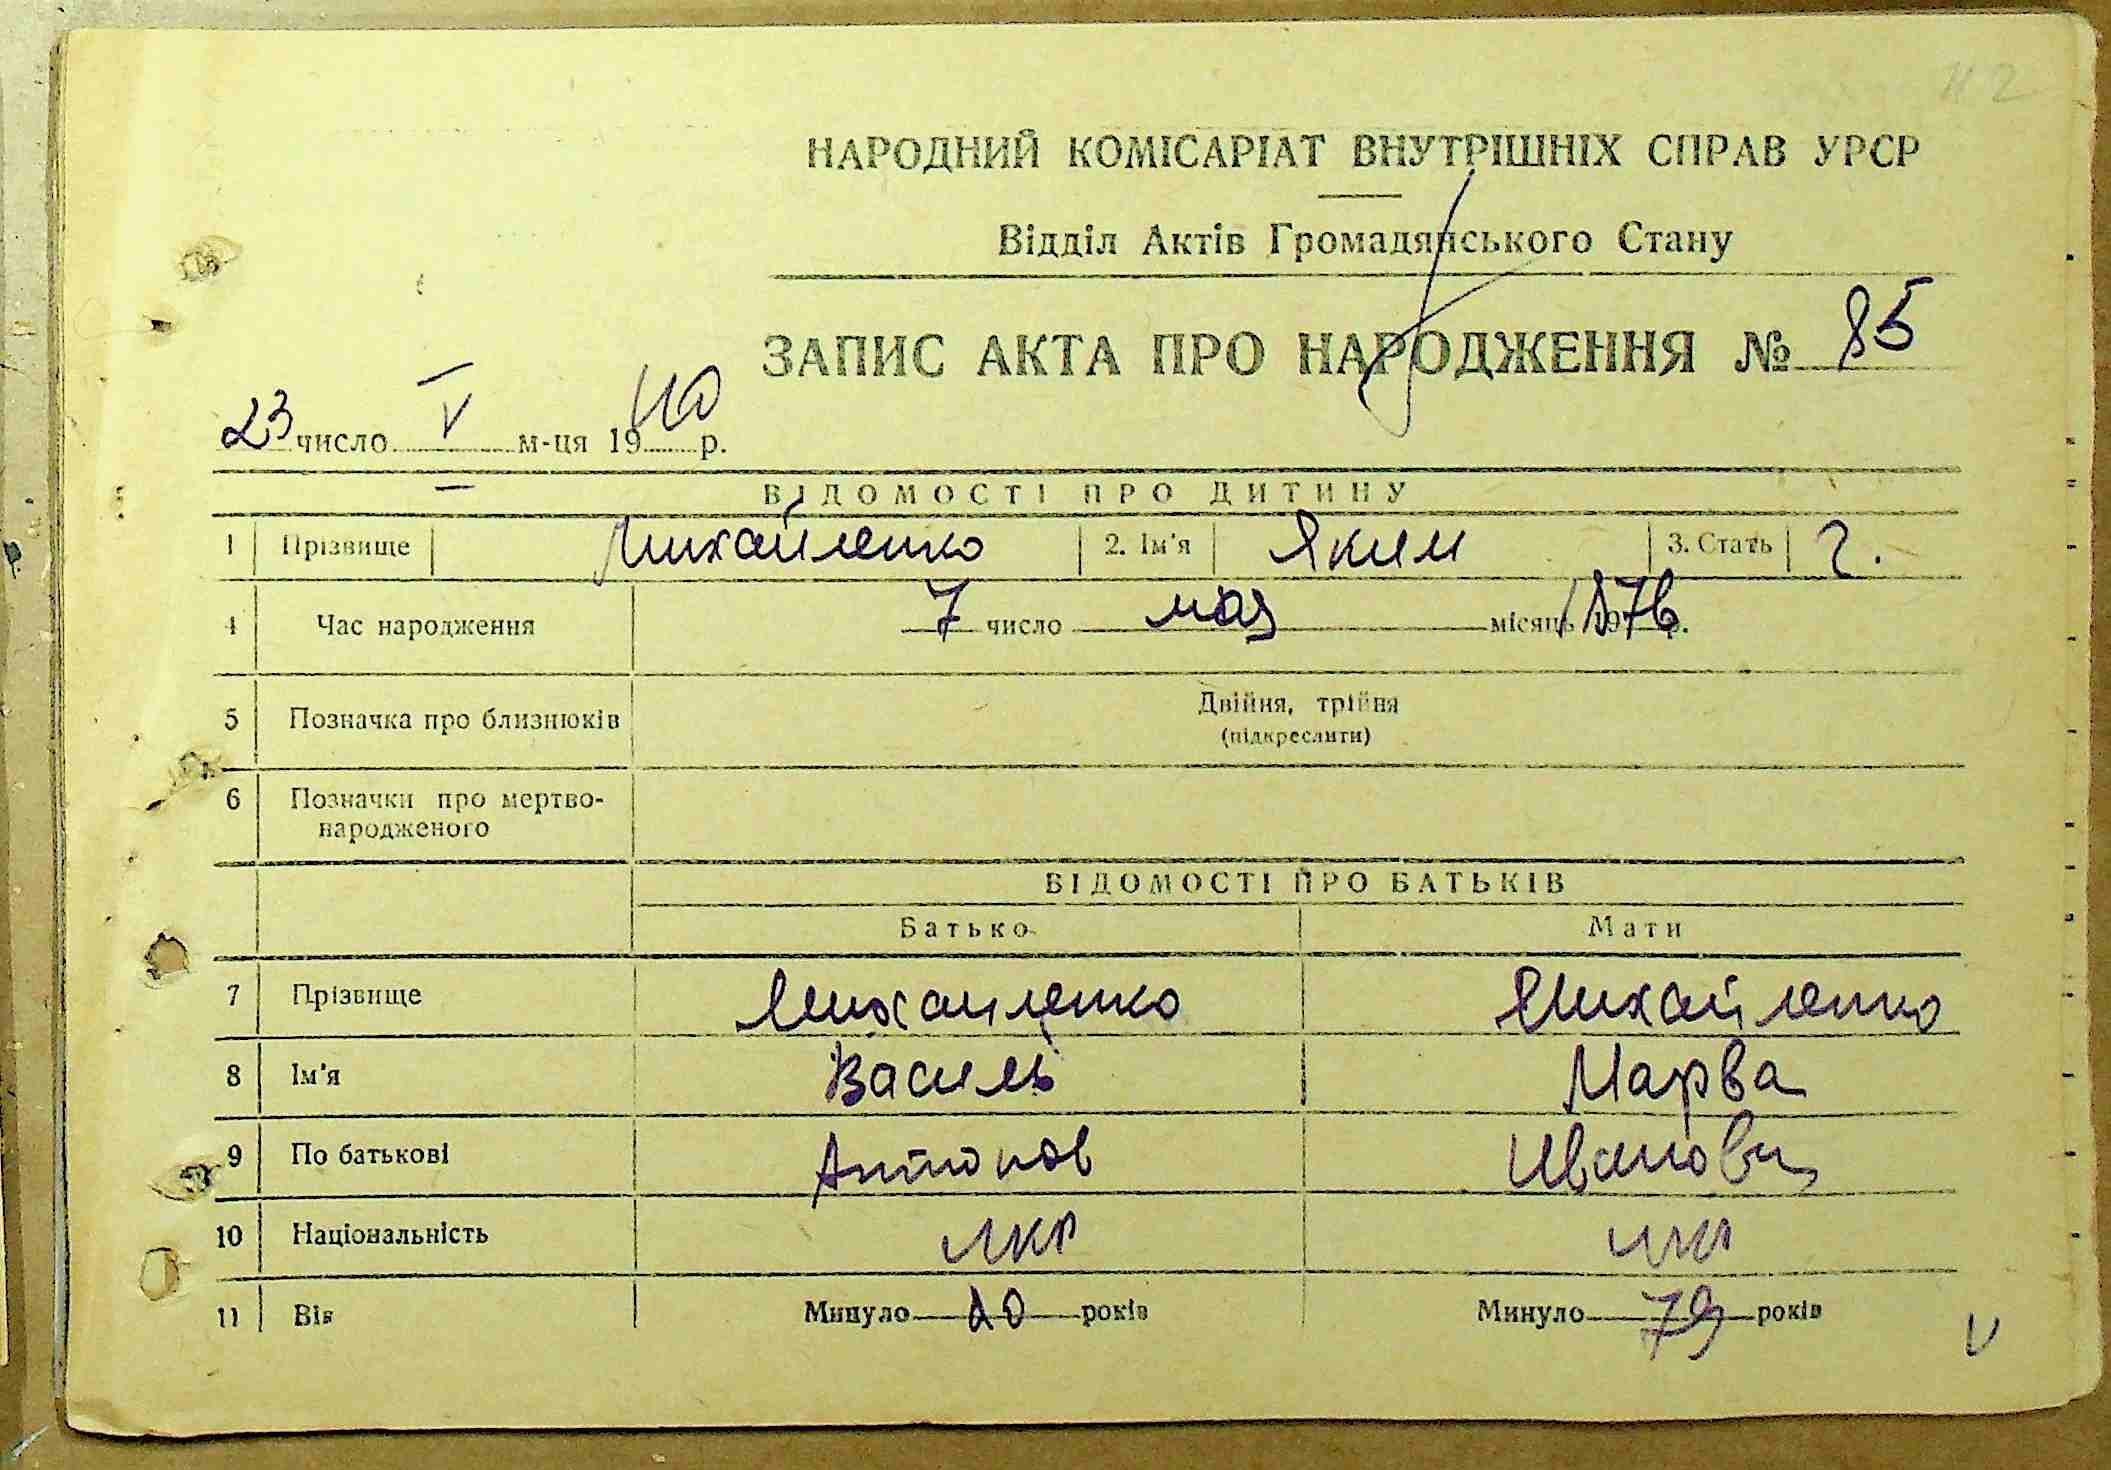 НАРОДНИЙ КОМІСАРІАТ ВНУТРІШНІХ СПРАВ УРСР
Відділ Актів Громадянського Стану
ЗАПИС АКТА ПРО НАРОДЖЕННЯ № 85
23 число V м-ця 1940 р.
ВІДОМОСТІ ПРО ДИТИНУ
1 Прізвище Михайленко 2. Ім'я Яким 3. Стать ч.
4 Час народження 7 число мая місяць 1876 р.
5 Позначка про близнюків Двійня, трійня
(підкреслити)
6 Позначки про мертво-
народженого
ВІДОМОСТІ ПРО БАТЬКІВ
Батько Мати
7 Прізвище Михайленко Михайленко
8 Ім'я Василь Марва
9 По батькові Антонов Иванови
10 Національність укр укр
11 Вік Минуло років Минуло 79 років